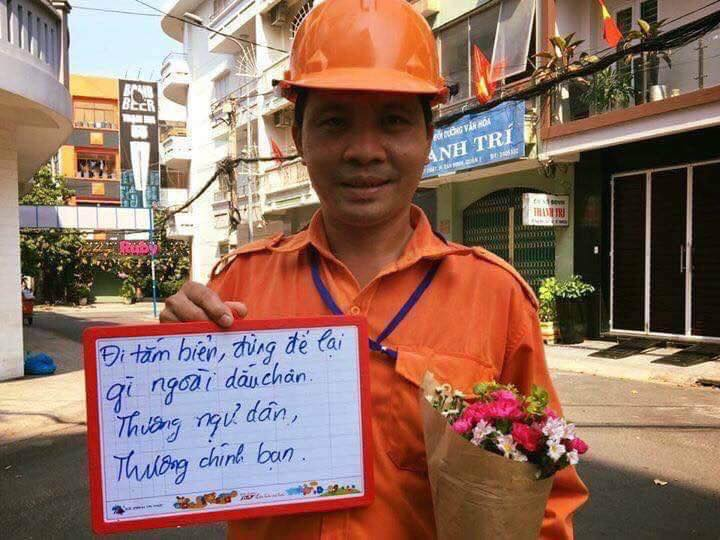 BEER
Ruby
BỒI DƯỠNG VĂN HÓA
ANH TRÍ
THANH TRÍ
Đi tắm biển, đừng để lại
gì ngoài dấu chân.
Thương ngư dân,
Thương chính bạn.